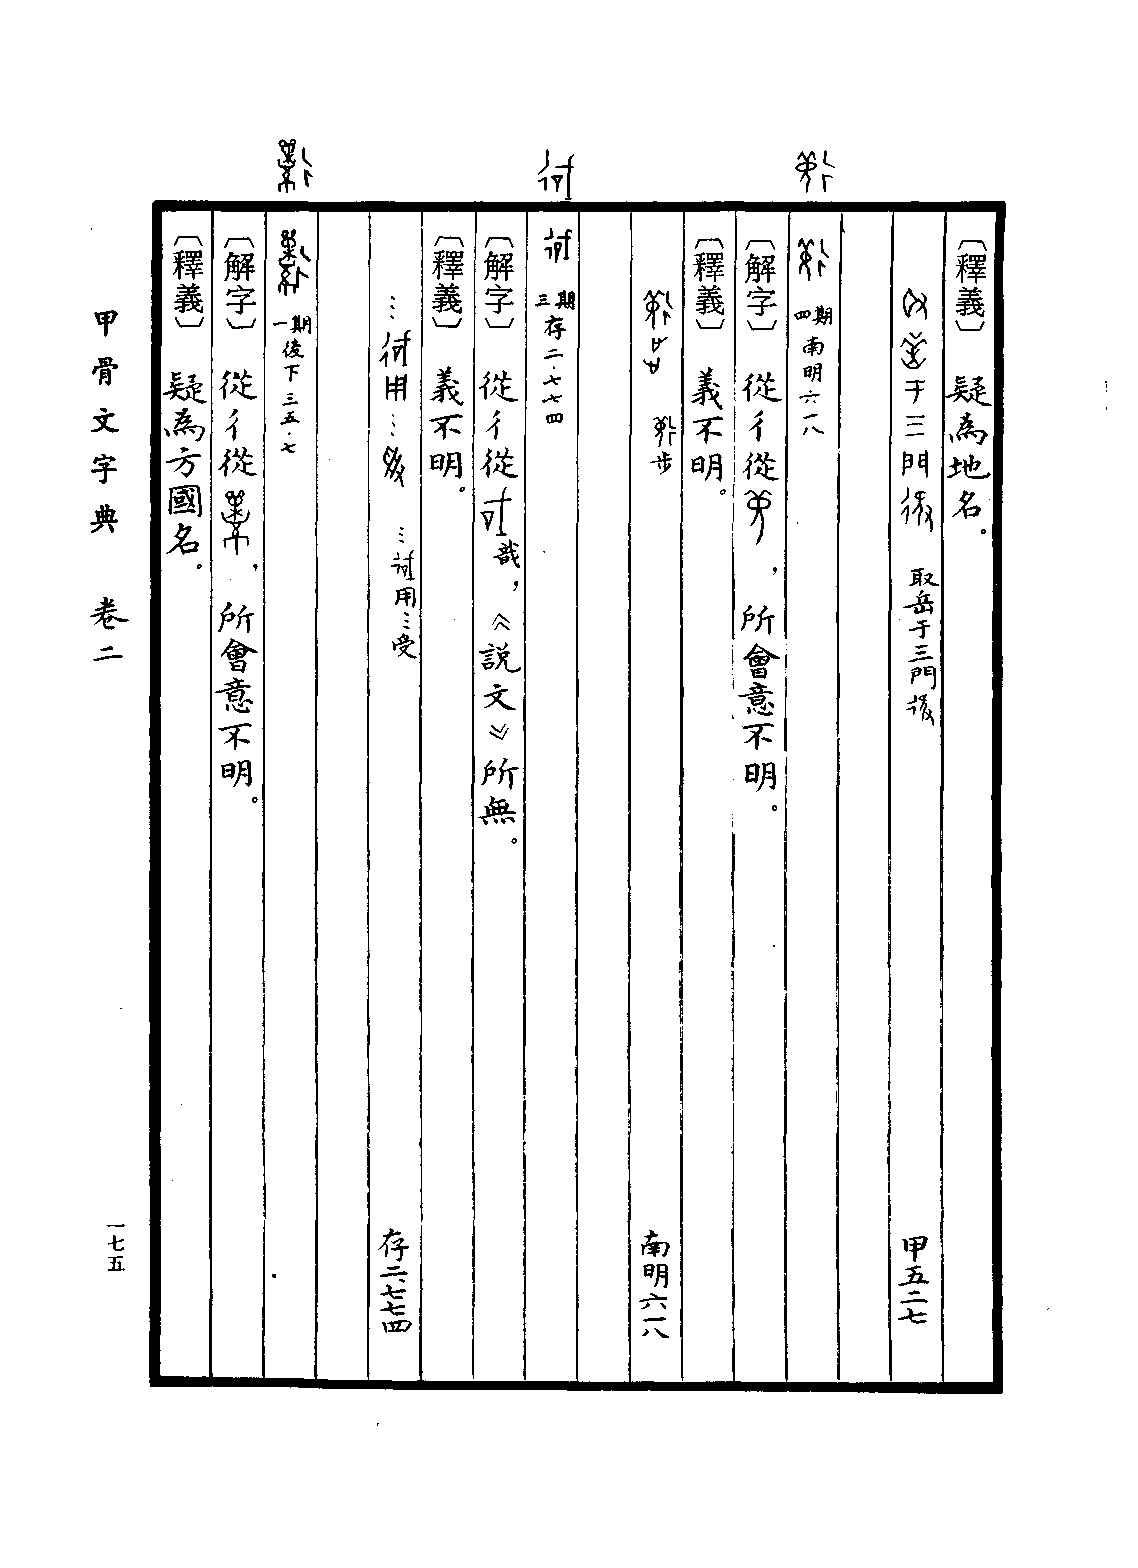 〔釋義〕 疑為地名。
于三門 取岳于三門後 甲五二七
四期 南明六一八
〔解字〕 從彳從 ，所會意不明。
〔釋義〕 義不明。
步 南明六一八
三期 存二·七七四
〔解字〕 從彳從 ，《說文》所無。
〔釋義〕 義不明。
…用… …用…受 存二、七七四
一期 後下三五·七
〔解字〕 從彳從 ，所會意不明。
〔釋義〕 疑為方國名。
甲骨文字典 卷二
一七五